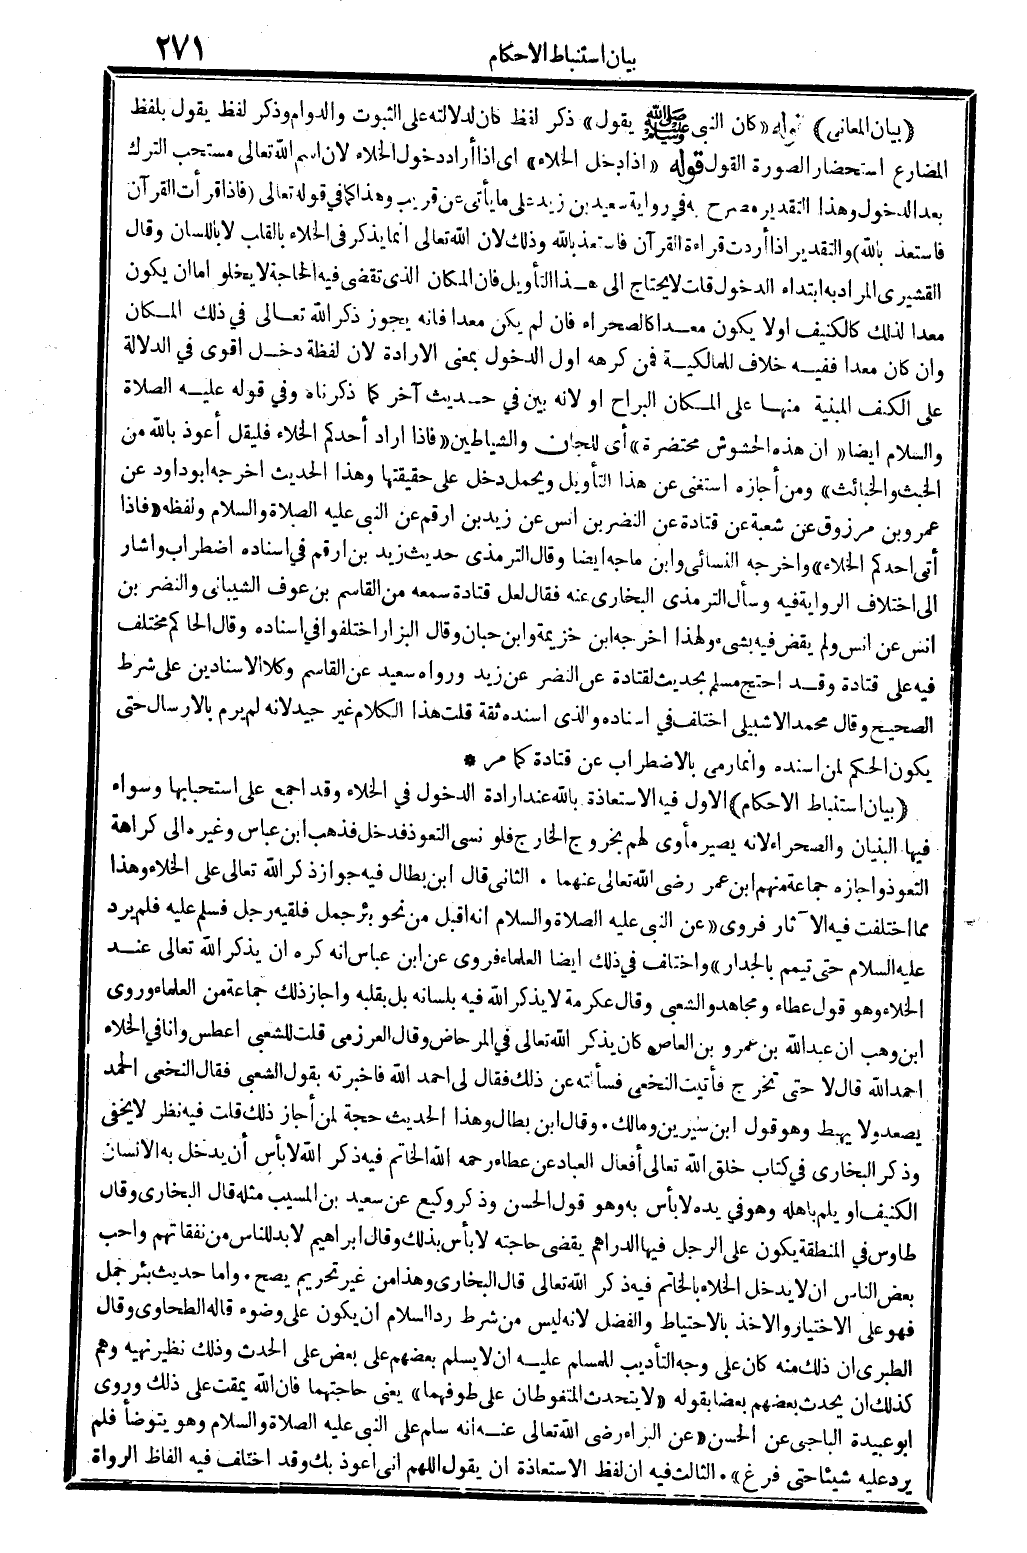 بيان استنباط الاحكام ٢٧١
(بيان المعانى) قوله «كان النبى ﷺ يقول» ذكر لفظ كان لدلالته على الثبوت والدوام وذكر لفظ يقول بلفظ
المضارع استحضار الصورة القول قوله «اذا دخل الخلاء» اى اذا أراد دخول الخلاء لان اسم الله تعالى مستحب الترك
بعد الدخول وهذا التقدير مصرح به فى رواية سعيد بن زيد على ما يأتى عن قريب وهذا كما في قوله تعالى (فاذا قرأت القرآن
فاستعذ بالله) والتقدير اذا أردت قراءة القرآن فاستعذ بالله وذلك لان الله تعالى انما يذكر فى الخلاء بالقلب لا باللسان وقال
القشيرى المراد به ابتداء الدخول قلت لا يحتاج الى هذا التأويل فان المكان الذى تقضى فيه الحاجة لا يخلو اما ان يكون
معدا لذلك كالكنيف اولا يكون معدا كالصحراء فان لم يكن معدا فانه يجوز ذكر الله تعالى في ذلك المكان
وان كان معدا ففيه خلاف للمالكية فمن كرهه اول الدخول بمعنى الارادة لان لفظة دخل اقوى في الدلالة
على الكنف المبنية منها على المكان البراح او لانه بين في حديث آخر كما ذكرناه وفي قوله عليه الصلاة
والسلام ايضا «ان هذه الحشوش محتضرة» أى للجان والشياطين «فاذا اراد أحدكم الخلاء فليقل أعوذ بالله من
الخبث والخبائث» ومن أجازه استغنى عن هذا التأويل ويحمل دخل على حقيقتها وهذا الحديث اخرجه ابو داود عن
عمرو بن مرزوق عن شعبة عن قتادة عن النضر بن انس عن زيد بن ارقم عن النبى عليه الصلاة والسلام ولفظه «فاذا
أتى احدكم الخلاء» واخرجه النسائى وابن ماجه ايضا وقال الترمذى حديث زيد بن ارقم في اسناده اضطراب واشار
الى اختلاف الرواية فيه وسأل الترمذى البخارى عنه فقال لعل قتادة سمعه من القاسم بن عوف الشيبانى والنضر بن
انس عن انس ولم يقض فيه بشىء ولهذا اخرجه ابن خزيمة وابن حبان وقال البزار اختلفوا في اسناده وقال الحاكم مختلف
فيه على قتادة وقد احتج مسلم بحديث لقتادة عن النضر عن زيد ورواه سعيد عن القاسم وكلا الاسنادين على شرط
الصحيح وقال محمد الاشبيلى اختلف في اسناده والذى اسنده ثقة قلت هذا الكلام غير جيد لانه لم يرم بالارسال حتى
يكون الحكم لمن اسنده وانما رمى بالاضطراب عن قتادة كما مر *
(بيان استنباط الاحكام) الاول فيه الاستعاذة بالله عند ارادة الدخول في الخلاء وقد اجمع على استحبابها وسواء
فيها البنيان والصحراء لانه يصير مأوى لهم بخروج الخارج فلو نسى التعوذ فدخل فذهب ابن عباس وغيره الى كراهة
التعوذ واجازه جماعة منهم ابن عمر رضى الله تعالى عنهما . الثانى قال ابن بطال فيه جواز ذكر الله تعالى على الخلاء وهذا
مما اختلفت فيه الآثار فروى «عن النبى عليه الصلاة والسلام انه اقبل من نحو بئر جمل فلقيه رجل فسلم عليه فلم يرد
عليه السلام حتى تيمم بالجدار» واختلف في ذلك ايضا العلماء فروى عن ابن عباس انه كره ان يذكر الله تعالى عند
الخلاء وهو قول عطاء ومجاهد والشعبى وقال عكرمة لا يذكر الله فيه بلسانه بل بقلبه واجاز ذلك جماعة من العلماء وروى
ابن وهب ان عبدالله بن عمرو بن العاص كان يذكر الله تعالى في المرحاض وقال العرزمى قلت للشعبى اعطس وانا في الخلاء
احمد الله قال لا حتى تخرج فأتيت النخعى فسألته عن ذلك فقال لى احمد الله فاخبرته بقول الشعبى فقال النخعى الحمد
يصعد ولا يهبط وهو قول ابن سيرين ومالك . وقال ابن بطال وهذا الحديث حجة لمن أجاز ذلك قلت فيه نظر لا يخفى
وذكر البخارى في كتاب خلق الله تعالى أفعال العباد عن عطاء رحمه الله الخاتم فيه ذكر الله لا بأس أن يدخل به الانسان
الكنيف او يلم باهله وهو في يده لا بأس به وهو قول الحسن وذكر وكيع عن سعيد بن المسيب مثله قال البخارى وقال
طاوس في المنطقة يكون على الرجل فيها الدراهم يقضى حاجته لا بأس بذلك وقال ابراهيم لا بد للناس من نفقاتهم واحب
بعض الناس ان لا يدخل الخلاء بالخاتم فيه ذكر الله تعالى قال البخارى وهذا من غير تحريم يصح . واما حديث بئر جمل
فهو على الاختيار والاخذ بالاحتياط والفضل لانه ليس من شرط رد السلام ان يكون على وضوء قاله الطحاوى وقال
الطبرى ان ذلك منه كان على وجه التأديب للمسلم عليه ان لا يسلم بعضهم على بعض على الحدث وذلك نظير نهيه وهم
كذلك ان يحدث بعضهم بعضا بقوله «لا يتحدث المتغوطان على طوفهما» يعنى حاجتهما فان الله يمقت على ذلك وروى
ابو عبيدة الباجى عن الحسن «عن البراء رضى الله تعالى عنه انه سلم على النبى عليه الصلاة والسلام وهو يتوضأ فلم
يرد عليه شيئا حتى فرغ» . الثالث فيه ان لفظ الاستعاذة ان يقول اللهم انى اعوذ بك وقد اختلف فيه الفاظ الرواة